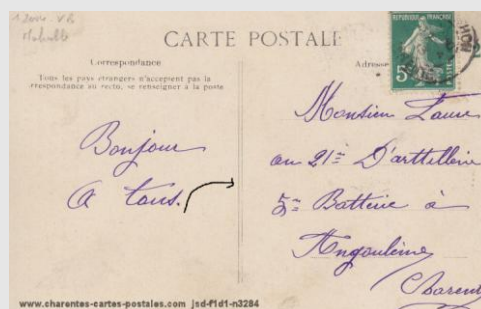 CARTE POSTALE
Correspondance
Tous les pays étrangers n'acceptent pas la
rrespondance au recto, se renseigner à la poste
Bonjour
A tous.
Adresse
RÉPUBLIQUE FRANÇAISE
5
Monsieur
au 21e D'arttillerie
5e Batterie à
Angoulême
Charen
www.charentes-cartes-postales.com jsd-f1d1-n3284